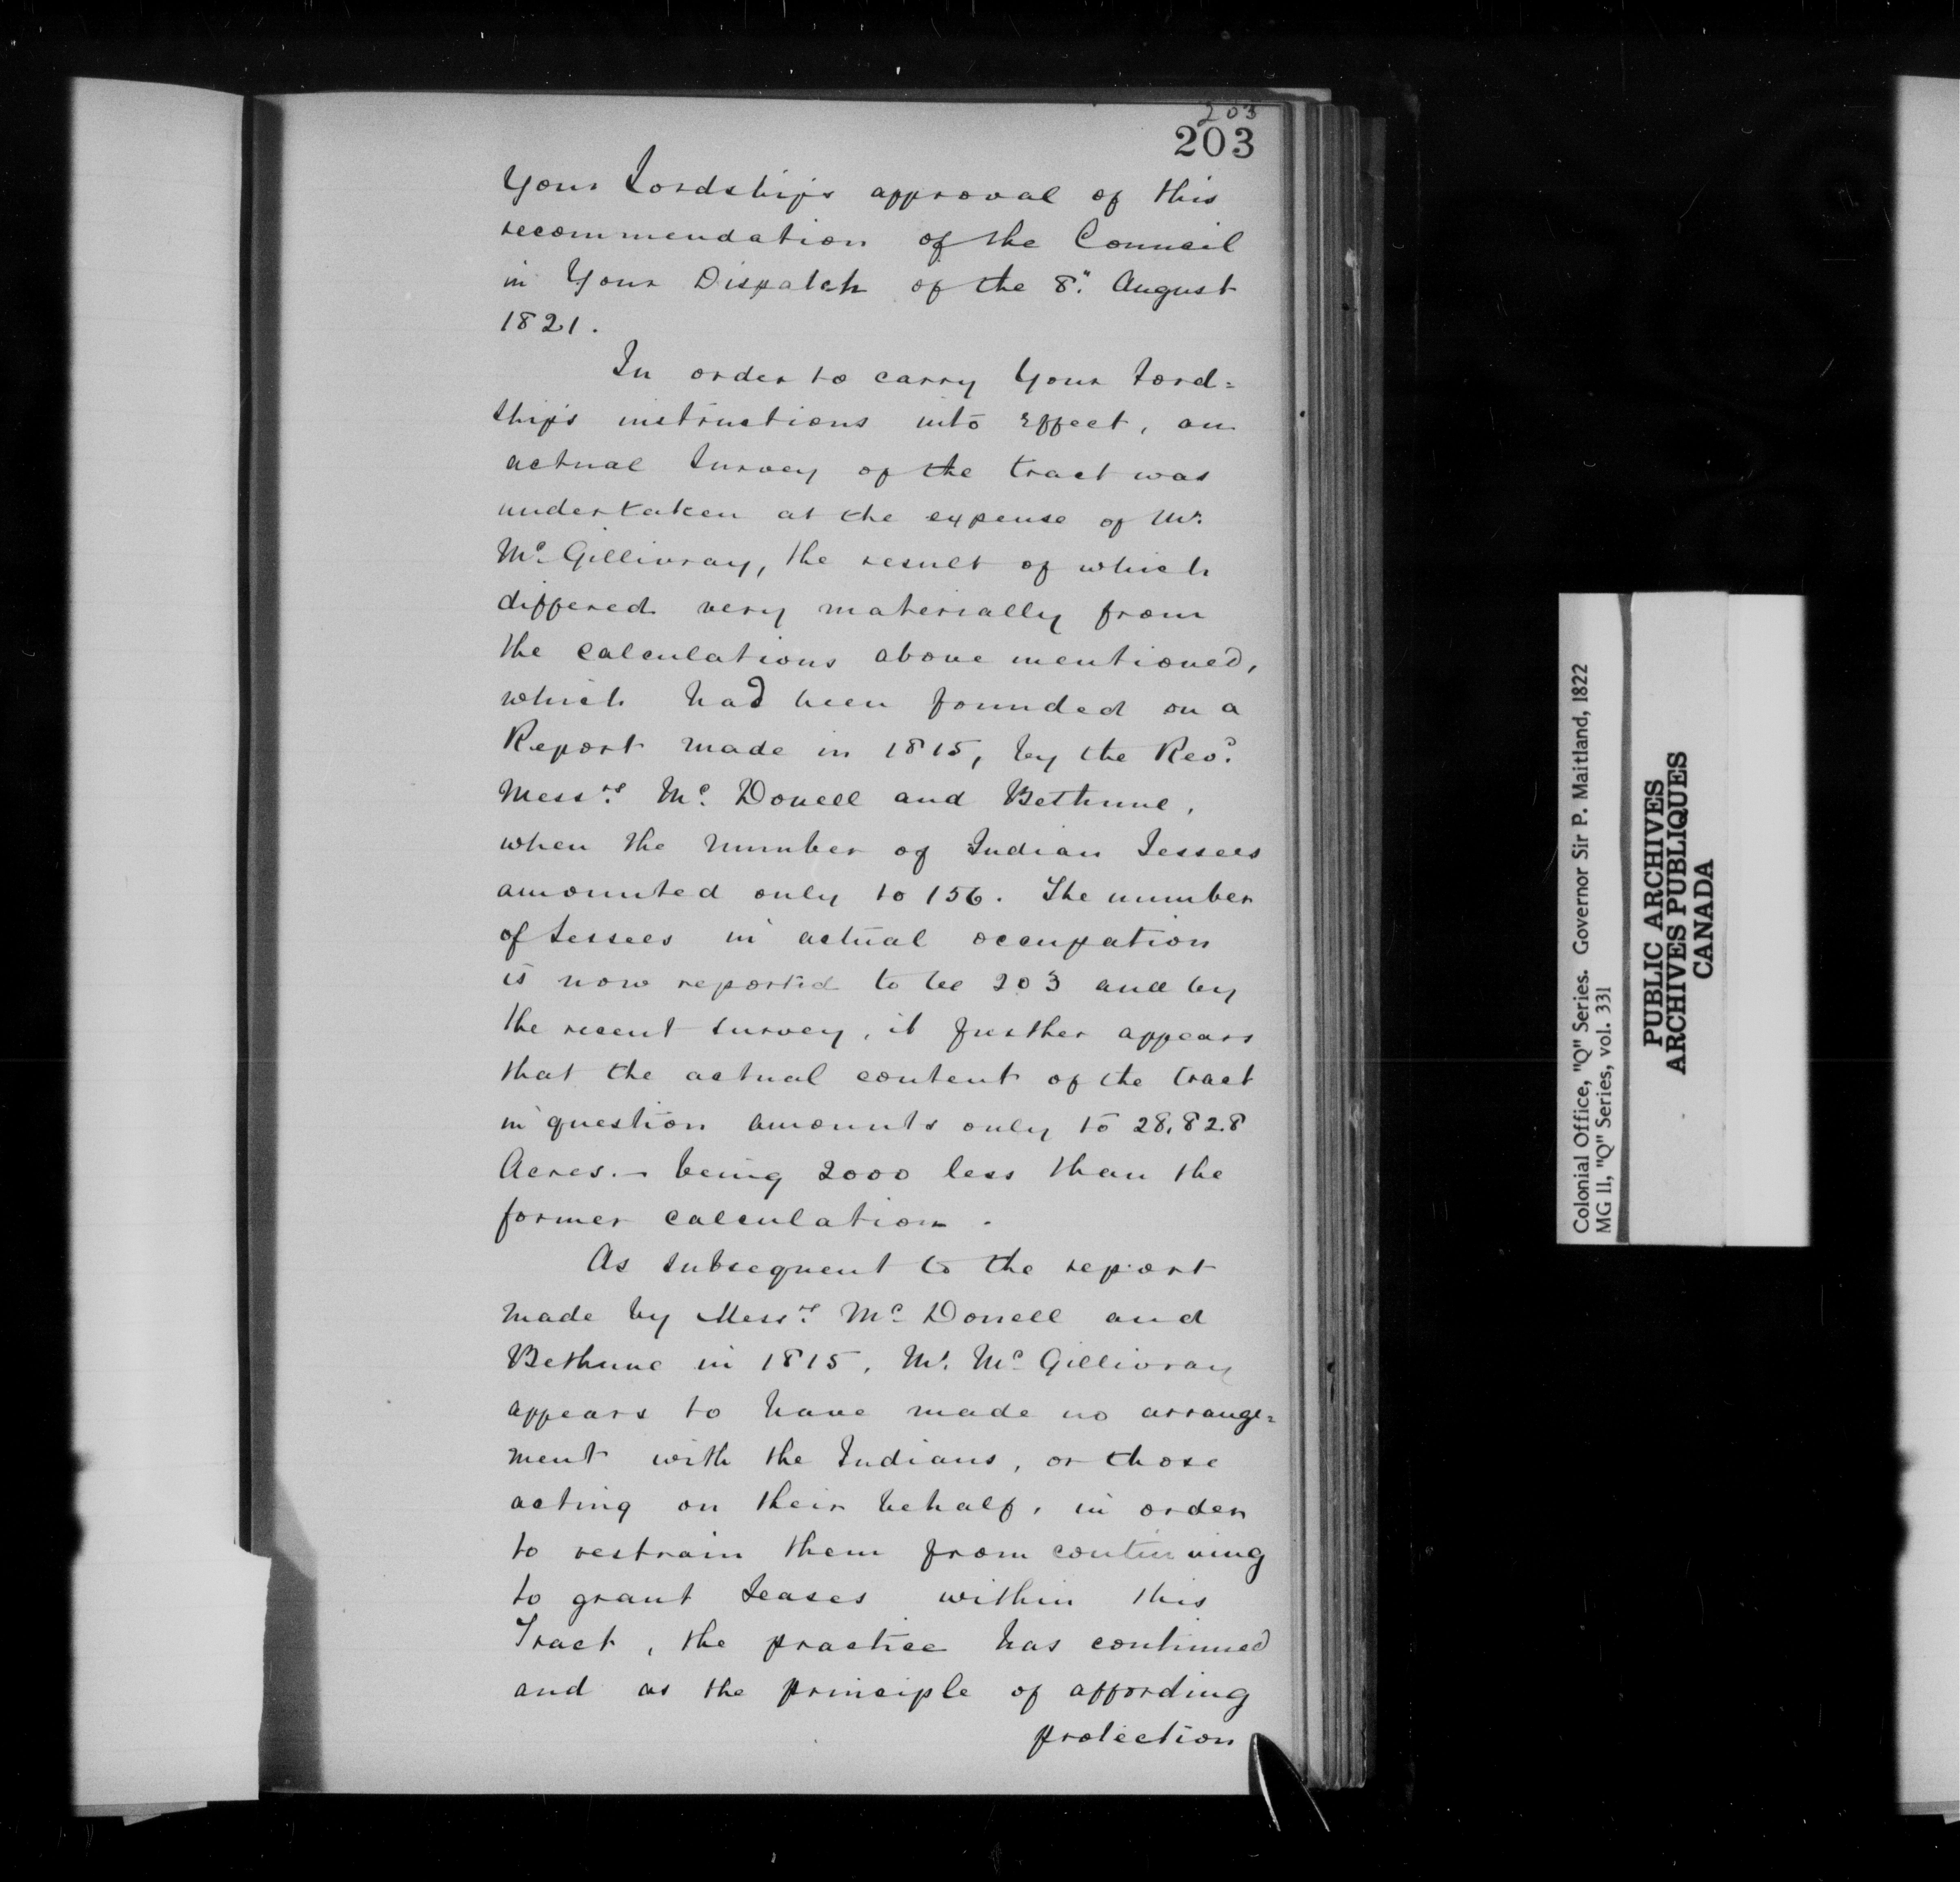 203
203
Your Lordship's approval of this
recommendation of the Council
in Your Dispatch of the 8". August
1821.
In order to carry Your Lord=
ship's instructions into effect, an
actual Survey of the tract was
undertaken at the expense of Mr.
Mc. Gillivray, the result of which
differed very materially from
the calculations above mentioned,
which had been founded on a
Report made in 1815, by the Revd.
Messrs. Mc. Donell and Bethune,
when the number of Indian Lessees
amounted only to 156. The number
of Lessees in actual occupation
is now reported to be 203 and by
the recent survey, it further appears
that the actual content of the tract
in question amounts only to 28,828
Acres. - being 2000 less than the
former calculation.
As subsequent to the report
made by Messrs. Mc Donell and
Bethune in 1815, Mr. Mc Gillivray
appears to have made no arrange=
ment with the Indians, or those
acting on their behalf, in order
to restrain them from continuing
to grant Leases within this
Tract, the practice has continued
and as the principle of affording
protection
Colonial Office, "Q" Series. Governor Sir P. Maitland, 1822
MG 11, "Q" Series, vol. 331
PUBLIC ARCHIVES
ARCHIVES PUBLIQUES
CANADA